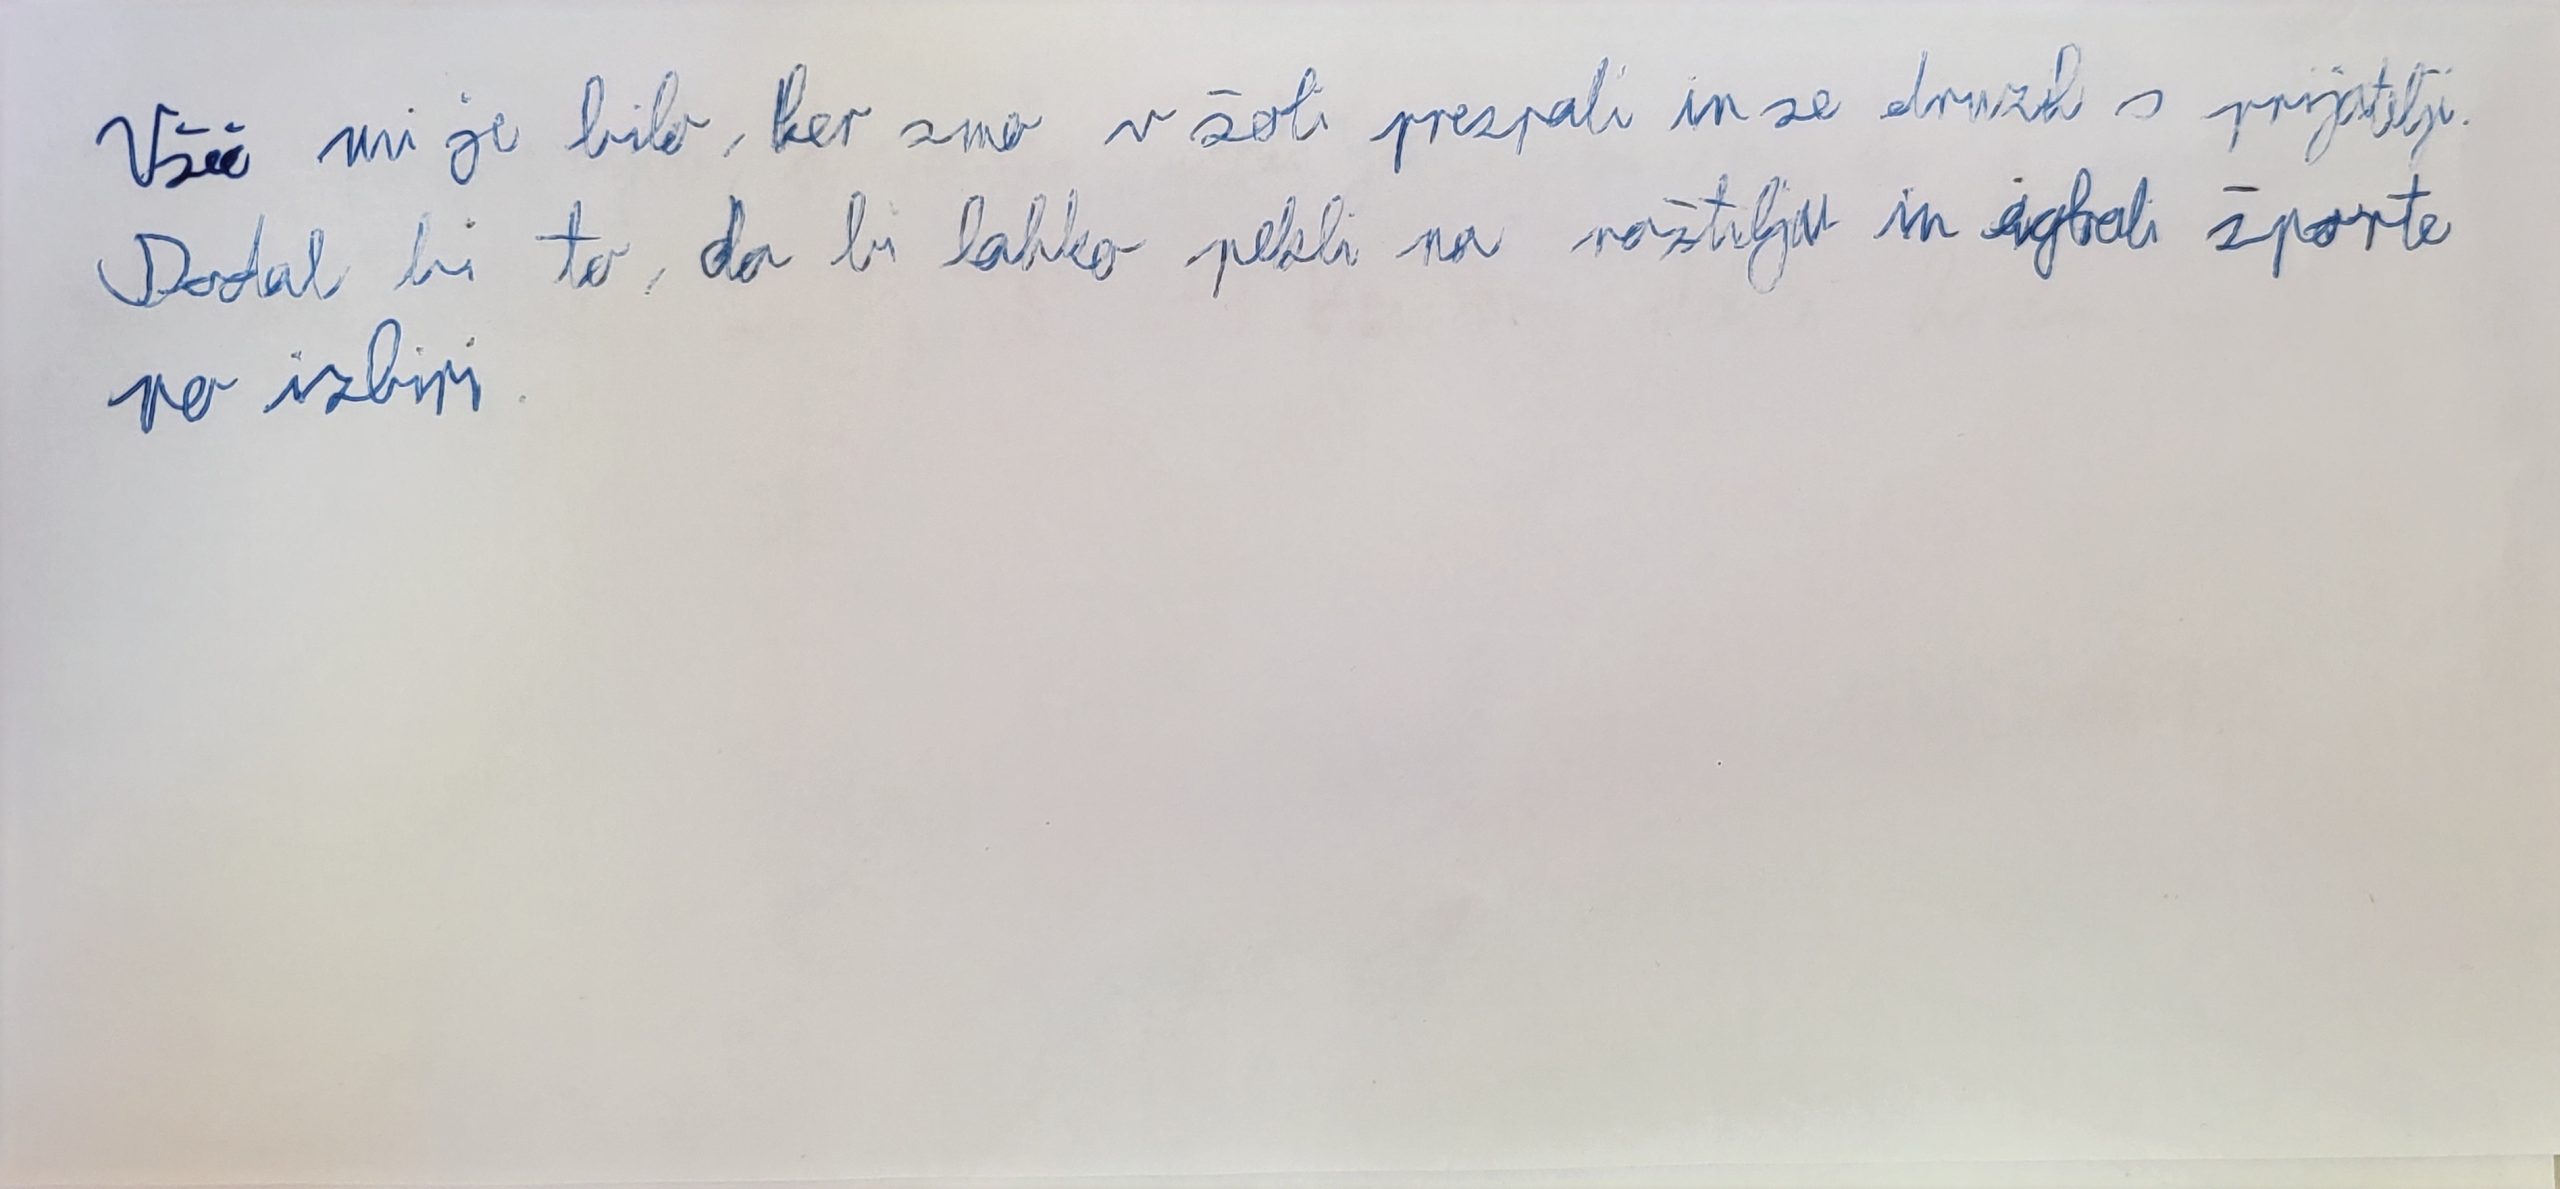 Všeč mi je bilo, ker smo v šoli prespali in se družili s prijatelji.
Dodal bi to, da bi lahko pekli na roštilju in igrali športe
po izbiri.